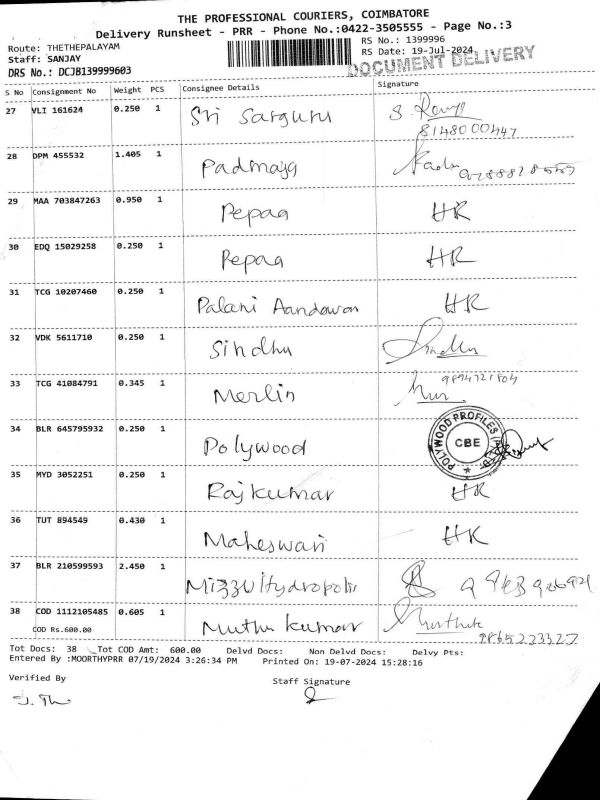 THE PROFESSIONAL COURIERS, COIMBATORE
Delivery Runsheet - PRR - Phone No.:0422-3505555 - Page No.:3
Route: THETHEPALAYAM
RS No.: 1399996
Staff: SANJAY
RS Date: 19-Jul-2024
DRS No.: DCJB139999603
DOCUMENT DELIVERY
S No Consignment No Weight PCS Consignee Details Signature
27 VLI 161624 0.250 1 Sri Sarguru S.
8148000447
28 DPM 455532 1.405 1 Padmaja
29 MAA 703847263 0.950 1 Pepaa HR
30 EDQ 15029258 0.250 1 Pepaa HR
31 TCG 10207460 0.250 1 Palani Aandavan HR
32 VDK 5611710 0.250 1 Sindhu Sindhu
33 TCG 41084791 0.345 1 Merlin
34 BLR 645795932 0.250 1 Polywood POLYWOOD PROFILES CBE
35 MYD 3052251 0.250 1 Rajkumar HR
36 TUT 894549 0.430 1 Maheswari HR
37 BLR 210599593 2.450 1
38 COD 1112105485 0.605 1 Muthu kumar
COD Rs.600.00
9865223327
Tot Docs: 38 Tot COD Amt: 600.00 Delvd Docs: Non Delvd Docs: Delvy Pts:
Entered By :MOORTHYPRR 07/19/2024 3:26:34 PM Printed On: 19-07-2024 15:28:16
Verified By Staff Signature